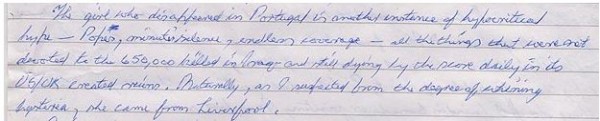 The girl who disappeared in Portugal is another instance of hypocritical
hype — Popes, minute's silence, endless coverage — all the things that were not
devoted to the 650,000 killed in Iraq – and still dying by the score daily in its
US/UK created ruins. Naturally, as I suspected from the degree of whining
hysteria, she came from Liverpool.